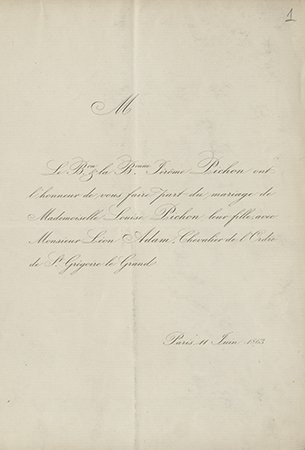 1
M
Le B.on & la B.onne Jérôme Pichon ont
l'honneur de vous faire part du mariage de
Mademoiselle Louise Pichon leur fille, avec
Monsieur Léon Adam, Chevalier de l'Ordre
de St. Grégoire le Grand.
Paris, 11 Juin 1863